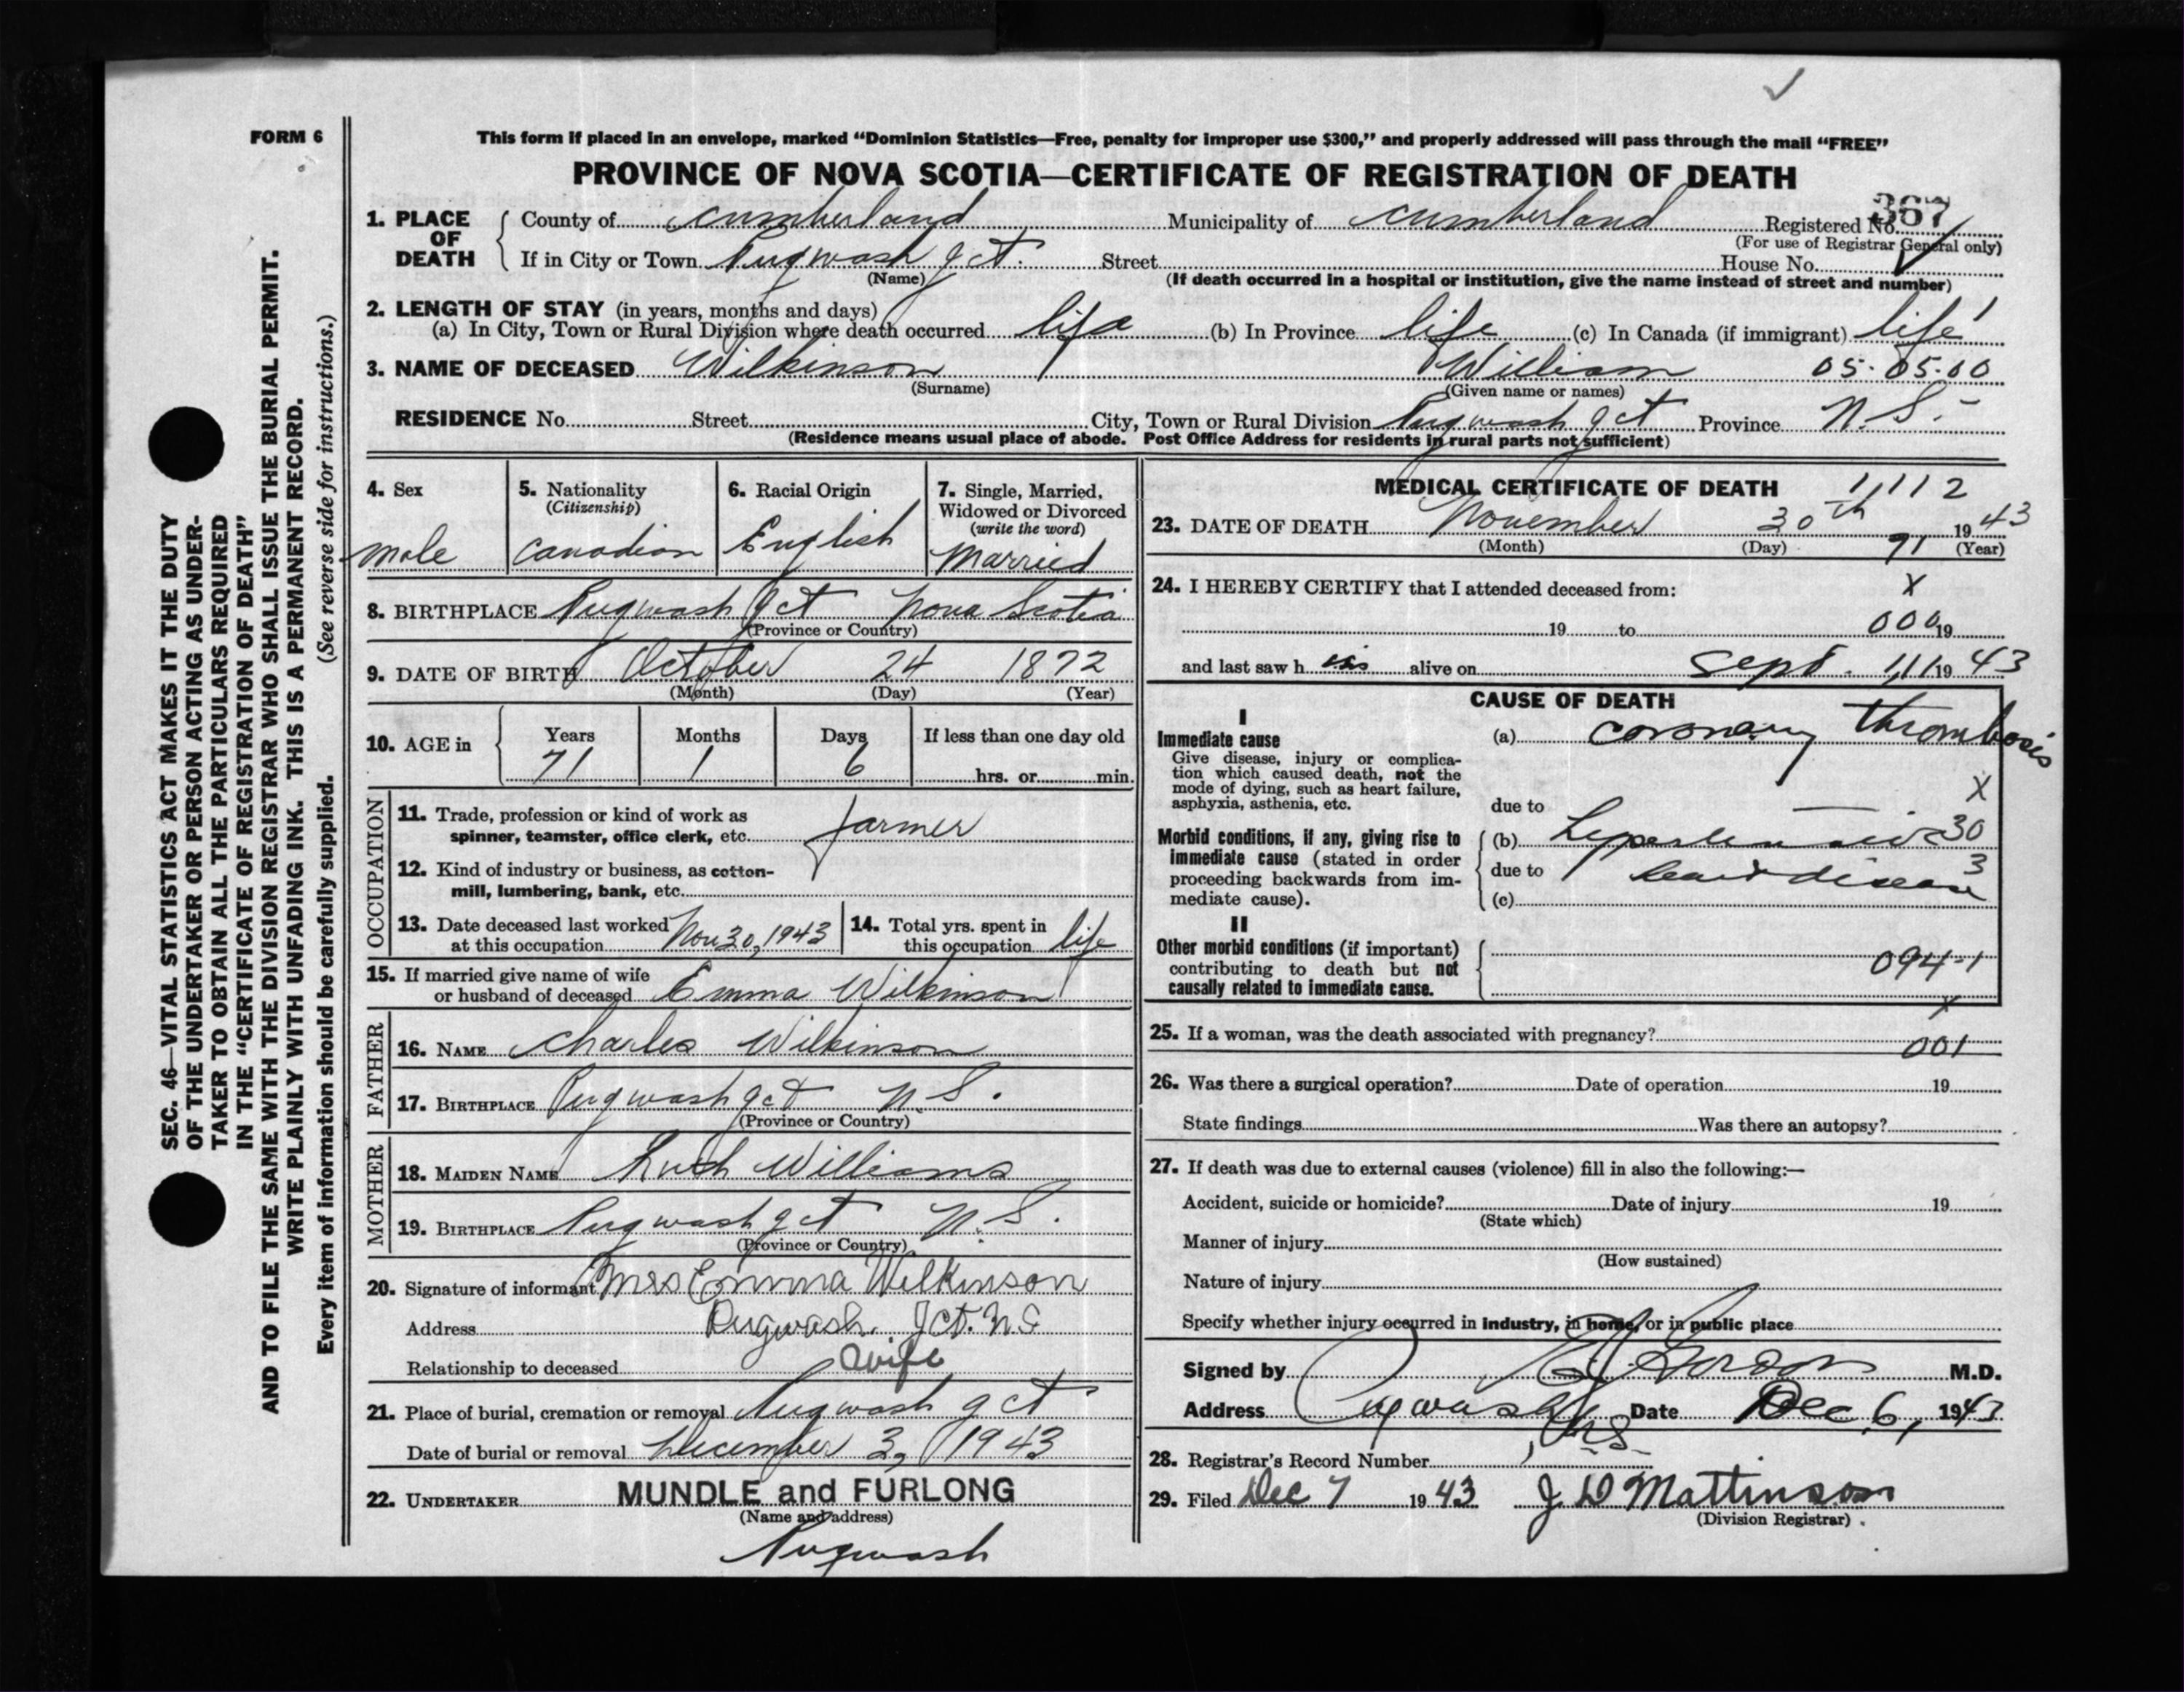 FORM 6
This form if placed in an envelope, marked “Dominion Statistics—Free, penalty for improper use $300,” and properly addressed will pass through the mail “FREE”
PROVINCE OF NOVA SCOTIA—CERTIFICATE OF REGISTRATION OF DEATH
SEC. 46—VITAL STATISTICS ACT MAKES IT THE DUTY
OF THE UNDERTAKER OR PERSON ACTING AS UNDER-
TAKER TO OBTAIN ALL THE PARTICULARS REQUIRED
IN THE “CERTIFICATE OF REGISTRATION OF DEATH”
AND TO FILE THE SAME WITH THE DIVISION REGISTRAR WHO SHALL ISSUE THE BURIAL PERMIT.
WRITE PLAINLY WITH UNFADING INK. THIS IS A PERMANENT RECORD.
Every item of information should be carefully supplied. (See reverse side for instructions.)
1. PLACE OF DEATH
County of Cumberland Municipality of Cumberland Registered No. 367
(For use of Registrar General only)
If in City or Town Pugwash Jct. Street House No.
(Name) (If death occurred in a hospital or institution, give the name instead of street and number)
2. LENGTH OF STAY (in years, months and days)
(a) In City, Town or Rural Division where death occurred life (b) In Province life (c) In Canada (if immigrant) life
3. NAME OF DECEASED Wilkinson William 05-05-00
(Surname) (Given name or names)
RESIDENCE No. Street City, Town or Rural Division Pugwash Jct Province N.S.-
(Residence means usual place of abode. Post Office Address for residents in rural parts not sufficient)
4. Sex
male
5. Nationality
(Citizenship)
Canadian
6. Racial Origin
English
7. Single, Married,
Widowed or Divorced
(write the word)
Married
8. BIRTHPLACE Pugwash Jct Nova Scotia
(Province or Country)
9. DATE OF BIRTH October 24 1872
(Month) (Day) (Year)
10. AGE in
Years Months Days If less than one day old
71 1 6 hrs. or min.
OCCUPATION
11. Trade, profession or kind of work as
spinner, teamster, office clerk, etc. farmer
12. Kind of industry or business, as cotton-
mill, lumbering, bank, etc.
13. Date deceased last worked
at this occupation Nov 30, 1943
14. Total yrs. spent in
this occupation life
15. If married give name of wife
or husband of deceased Emma Wilkinson
FATHER
16. NAME Charles Wilkinson
17. BIRTHPLACE Pugwash Jct N.S.
(Province or Country)
MOTHER
18. MAIDEN NAME Ruth Williams
19. BIRTHPLACE Pugwash Jct N.S.
(Province or Country)
20. Signature of informant Mrs Emma Wilkinson
Address Pugwash. Jct. N.S
Relationship to deceased Wife
21. Place of burial, cremation or removal Pugwash Jct
Date of burial or removal December 3, 1943
22. UNDERTAKER MUNDLE and FURLONG
(Name and address)
Pugwash
MEDICAL CERTIFICATE OF DEATH 1,112
23. DATE OF DEATH November 30th 1943
(Month) (Day) 71 (Year)
24. I HEREBY CERTIFY that I attended deceased from: X
19 to 000 19
and last saw h im alive on Sept. 1,1119 43
CAUSE OF DEATH
I
Immediate cause
Give disease, injury or complica-
tion which caused death, not the
mode of dying, such as heart failure,
asphyxia, asthenia, etc.
(a) coronary thrombosis
X
due to
Morbid conditions, if any, giving rise to
immediate cause (stated in order
proceeding backwards from im-
mediate cause).
(b) hypertensive 30
due to heart disease 3
(c)
II
Other morbid conditions (if important)
contributing to death but not
causally related to immediate cause.
094-1
X
25. If a woman, was the death associated with pregnancy? 001
26. Was there a surgical operation? Date of operation 19
State findings Was there an autopsy?
27. If death was due to external causes (violence) fill in also the following:—
Accident, suicide or homicide? Date of injury 19
(State which)
Manner of injury
(How sustained)
Nature of injury
Specify whether injury occurred in industry, in home, or in public place
Signed by Gordon M.D.
Address Pugwash, NS Date Dec 6, 1943
28. Registrar's Record Number
29. Filed Dec 7 1943 J. D Mattinson
(Division Registrar)